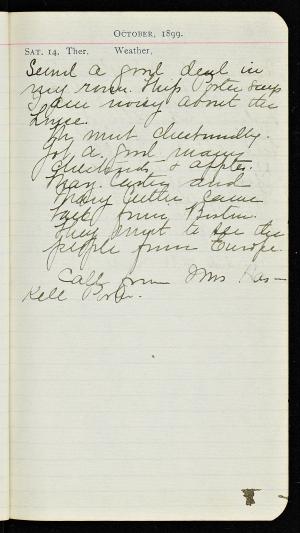 October, 1899.
Sat. 14. Ther. Weather.
Send a good deal in
my room. Miss Porter says
I am noisy about the
house.
We must chestnutting.
Got a good many
chestnuts & apples.
May and
Mary Cutler came
back from Boston.
They went to see the
people from Europe.
Call from Mrs Has-
kell